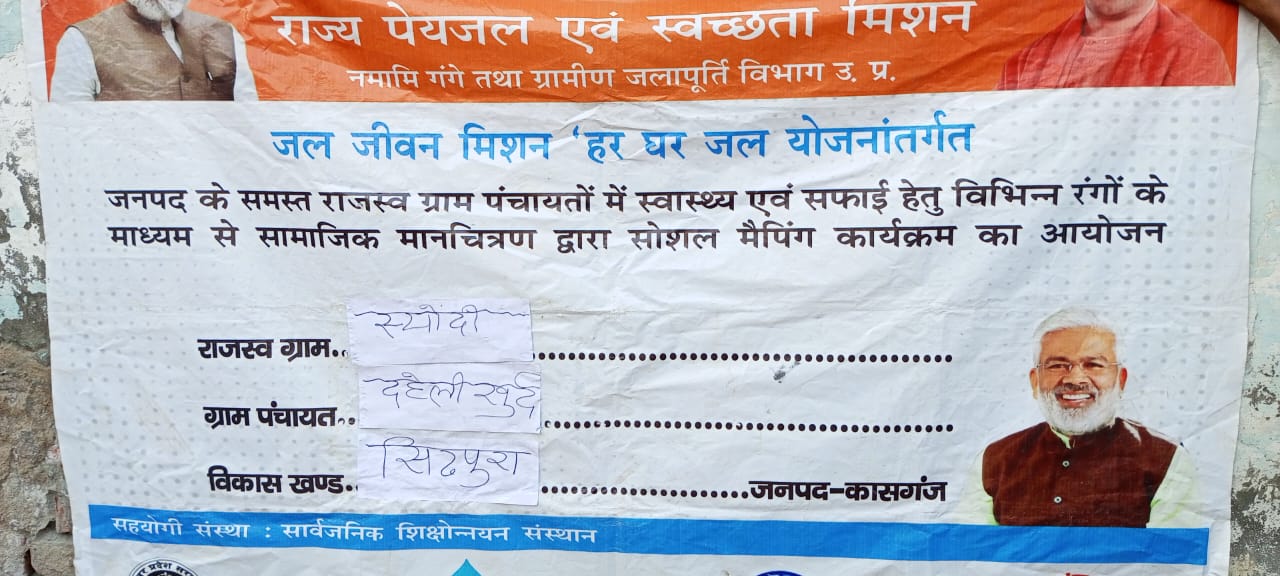 राज्य पेयजल एवं स्वच्छता मिशन
नमामि गंगे तथा ग्रामीण जलापूर्ति विभाग उ. प्र.
जल जीवन मिशन ‘हर घर जल योजनांतर्गत
जनपद के समस्त राजस्व ग्राम पंचायतों में स्वास्थ्य एवं सफाई हेतु विभिन्न रंगों के
माध्यम से सामाजिक मानचित्रण द्वारा सोशल मैपिंग कार्यक्रम का आयोजन
राजस्व ग्राम.. स्योंदी
ग्राम पंचायत.. दहेली खुर्द
विकास खण्ड.. सिढपुरा जनपद-कासगंज
सहयोगी संस्था : सार्वजनिक शिक्षोन्नयन संस्थान